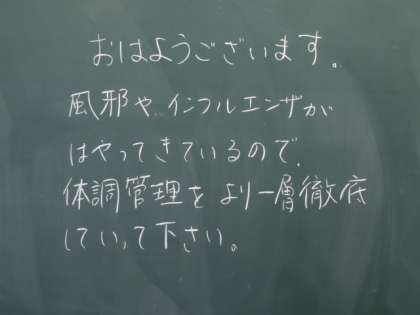 おはようございます。
風邪や、インフルエンザが
はやってきているので、
体調管理をより一層徹底
していって下さい。